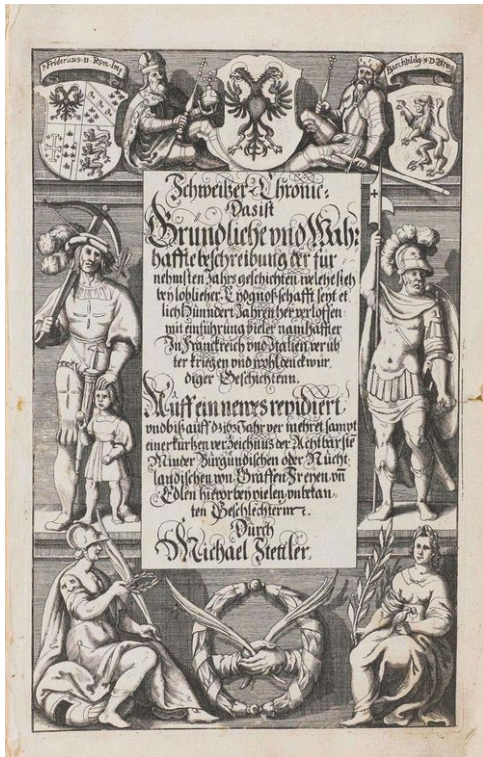 Fridericus·II·Rom·Imp
Berchtoldg·V·D·Zering
Schweitzer-Chronic:
Das ist
Gründliche vnd Wah:
haffte beschreibung der für
nehmsten Jahrs geschichten welche sich
bey loblicher Eydgnoßschafft seyt et
lich Hunndert Jahren her verloffen
mit einführung vieler namhaffter
In Franckreich vnd Italien verüb
ter kriegen vnd wohl denckwür
diger Geschichtenn.
Auff ein newes revidiert
vnd biß auff dz 1631 Jahr vermehret sampt
einer kurtzen verzeichnus der Achtbarstē
Minder Burgundischen oder Nücht
landischen von Graffen Freyen vn̄
Edlen hievor bey vielen vnbekan-
ten Geschlechternn.
Durch
Michael Stettler.